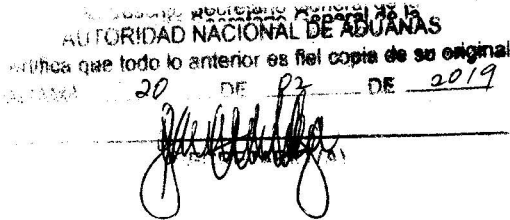 El Suscrito Secretario General de la
AUTORIDAD NACIONAL DE ADUANAS
certifica que todo lo anterior es fiel copia de su original
PANAMÁ 20 DE 02 DE 2019